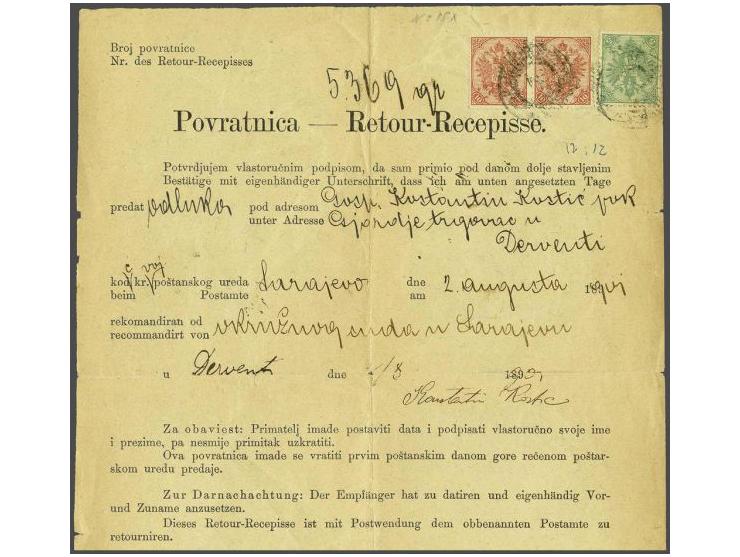 Broj povratnice
Nr. des Retour-Recepisses
5.369 gr
Povratnica — Retour-Recepisse.
12 . 12
Potvrdjujem vlastoručnim podpisom, da sam primio pod danom dolje stavljenim
Bestätige mit eigenhändiger Unterschrift, dass ich am unten angesetzten Tage
predat odluka pod adresom Gosp. Kostantin Kostić
unter Adresse trgovac u
Derventi
kod kr. poštanskog ureda Sarajevo dne 2. augusta 189
beim Postamte am
rekomandiran od okružnog suda u Sarajevu
recommandirt von
u Dervent dne 189
Kostić
Za obaviest: Primatelj imade postaviti data i podpisati vlastoručno svoje ime
i prezime, pa nesmije primitak uzkratiti.
Ova povratnica imade se vratiti prvim poštanskim danom gore rečenom poštar-
skom uredu predaje.
Zur Darnachachtung: Der Empfänger hat zu datiren und eigenhändig Vor-
und Zuname anzusetzen.
Dieses Retour-Recepisse ist mit Postwendung dem obbenannten Postamte zu
retourniren.